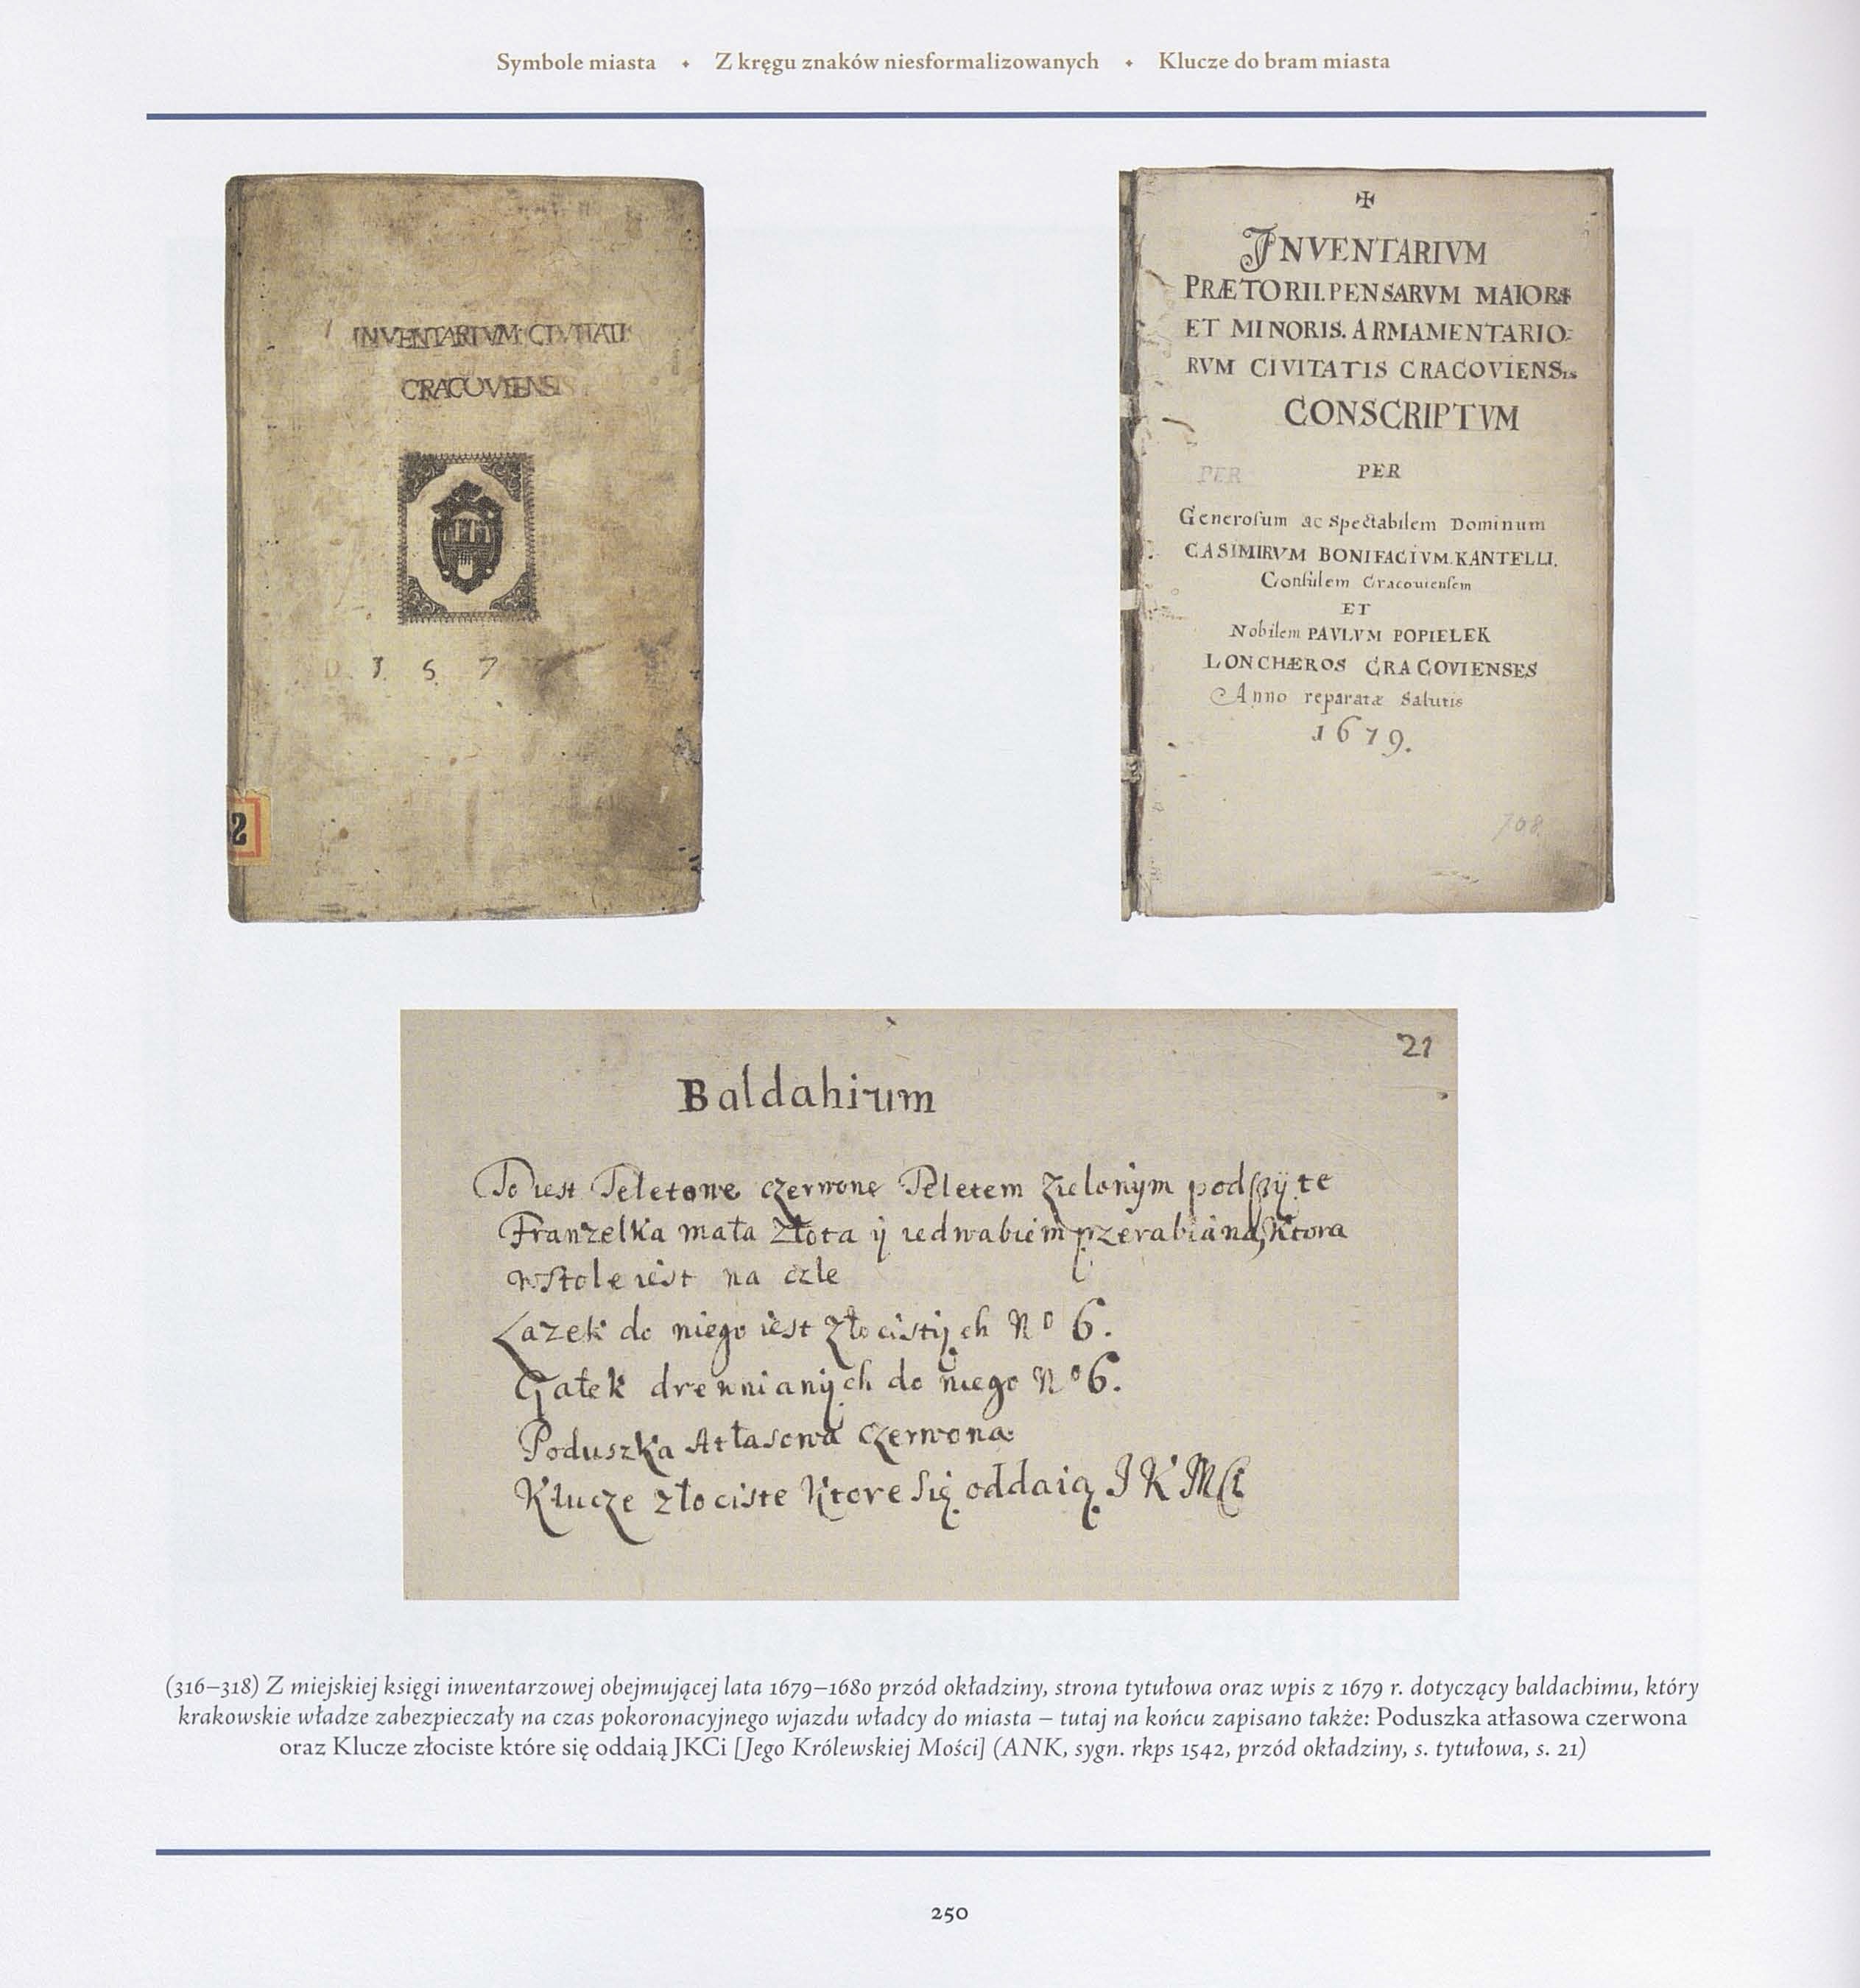 Symbole miasta ✦ Z kręgu znaków niesformalizowanych ✦ Klucze do bram miasta
INVENTARIVM CIVITATI
CRACOVIENSI
2
✠
INVENTARIVM
PRÆTORII. PENSARVM MAIORIS
ET MINORIS. ARMAMENTARIO-
RVM CIVITATIS CRACOVIENSIS
CONSCRIPTVM
PER PER
Generosum ac Spectabilem Dominum
CASIMIRVM BONIFACIVM KANTELLI.
Consulem Cracoviensem
ET
Nobilem PAVLVM POPIELEK
LONCHÆROS CRACOVIENSES
Anno reparatæ Salutis
1679.
708.
21
Baldahium
To iest Teletowe czerwone Teletem zielonym podszyte
Franzelka mała złota ÿ iedwabiem przerabiana, Ktora
wstole iest na czle
Lazek do niego iest złocistÿch No 6.
Gałek drewnianÿch do niego No 6.
Poduszka Atłasowa czerwona
Klucze złociste Ktore Się oddaią J K M
(316–318) Z miejskiej księgi inwentarzowej obejmującej lata 1679–1680 przód okładziny, strona tytułowa oraz wpis z 1679 r. dotyczący baldachimu, który
krakowskie władze zabezpieczały na czas pokoronacyjnego wjazdu władcy do miasta – tutaj na końcu zapisano także: Poduszka atłasowa czerwona
oraz Klucze złociste które się oddaią JKCi [Jego Królewskiej Mości] (ANK, sygn. rkps 1542, przód okładziny, s. tytułowa, s. 21)
250